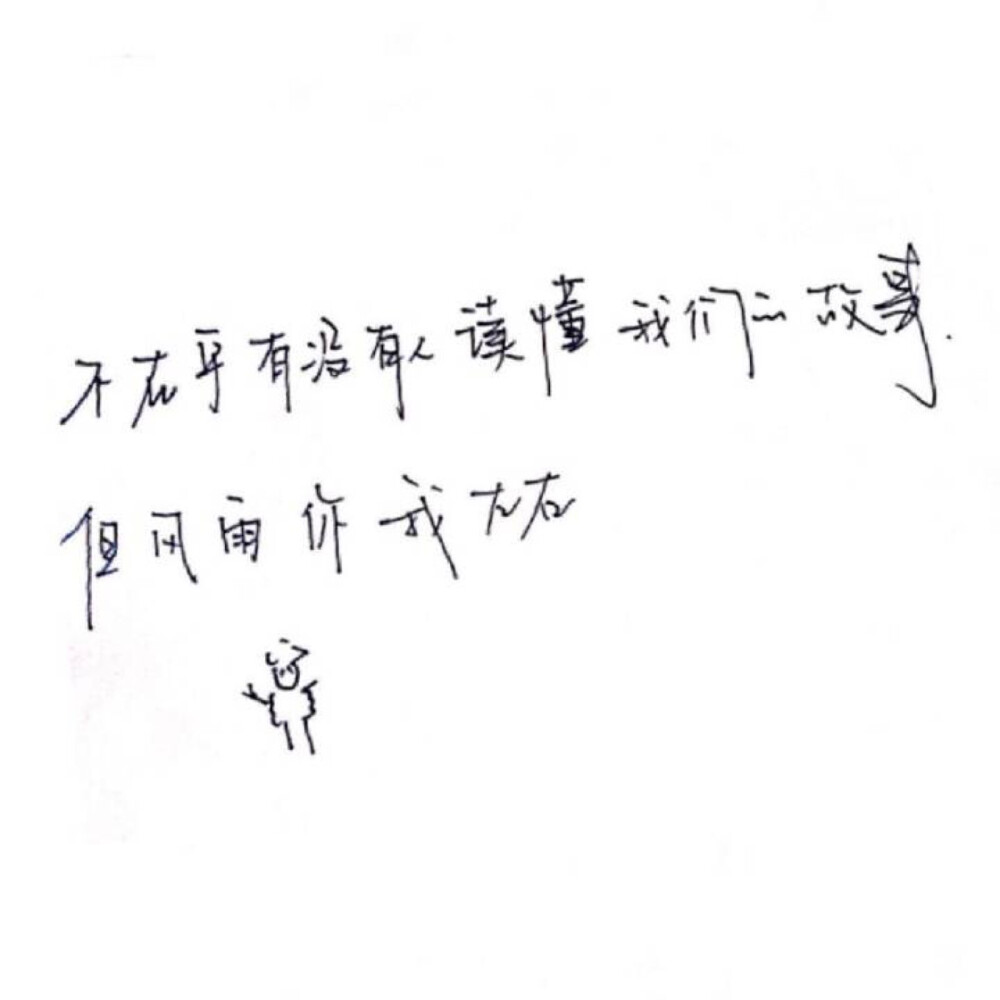 不在乎有没有人读懂我们的故事.
但风雨你我左右